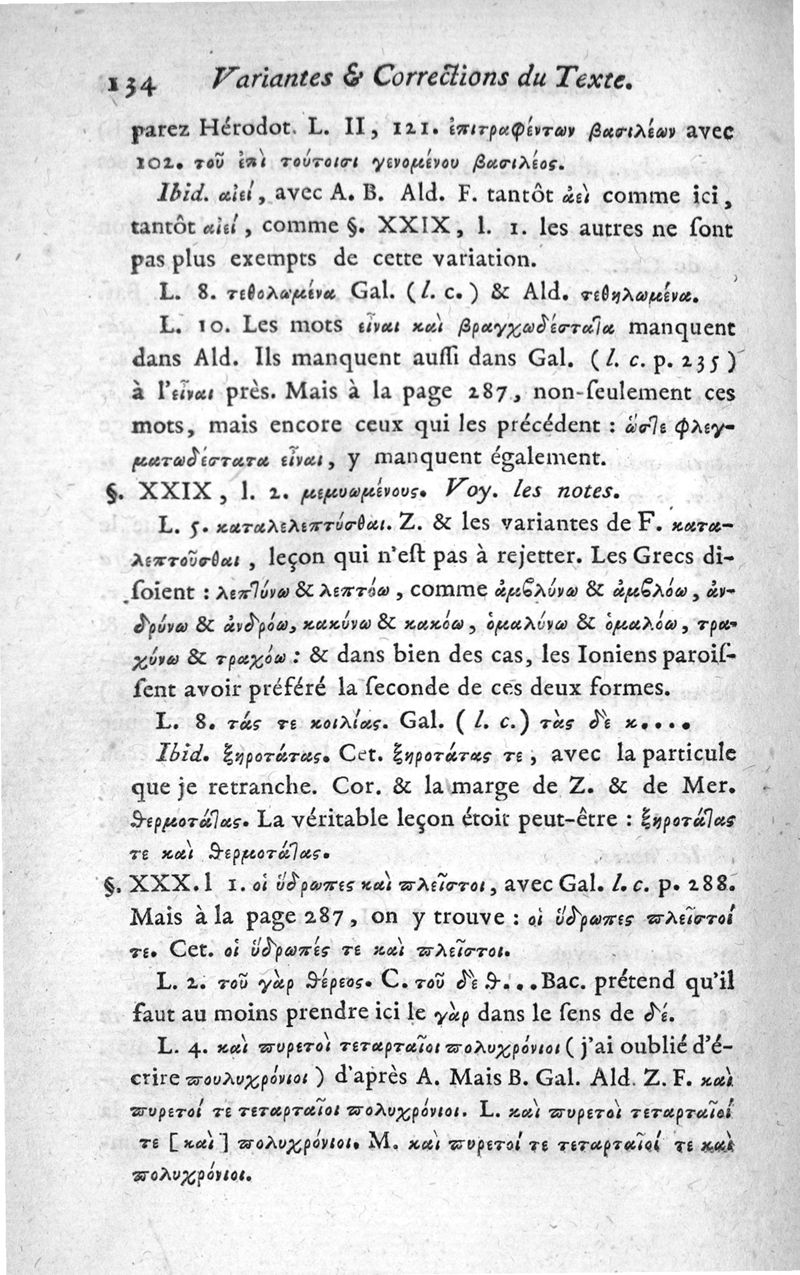 134 Variantes & Corrections du Texte.
parez Hérodot. L. II, 121. ἐπιτραφέντων βασιλέων avec
102. τοῦ ἐπὶ τούτοισι γενομένου βασιλέος.
Ibid. αἰεί, avec A. B. Ald. F. tantôt ἀεὶ comme ici,
tantôt αἰεί, comme §. XXIX, l. 1. les autres ne ſont
pas plus exempts de cette variation.
L. 8. τεθολωμένα Gal. (l. c.) & Ald. τεθηλωμένα.
L. 10. Les mots εἶναι καὶ βραγχωδέσταΊα manquent
dans Ald. Ils manquent auſſi dans Gal. (l. c. p. 235)
à l'εἶναι près. Mais à la page 287, non-ſeulement ces
mots, mais encore ceux qui les précédent : ὥσΊε φλεγ-
ματωδέστατα εἶναι, y manquent également.
§. XXIX, l. 2. μεμυωμένους. Voy. les notes.
L. 5. καταλελεπτύσθαι. Z. & les variantes de F. κατα-
λεπτοῦσθαι, leçon qui n'eſt pas à rejetter. Les Grecs di-
ſoient : λεπΊύνω & λεπτόω, comme ἀμϐλύνω & ἀμϐλόω, ἀν-
δρύνω & ἀνδρόω, κακύνω & κακόω, ὁμαλύνω & ὁμαλόω, τρα-
χύνω & τραχόω : & dans bien des cas, les Ioniens paroiſ-
ſent avoir préféré la ſeconde de ces deux formes.
L. 8. τάς τε κοιλίας. Gal. (l. c.) τὰς δὲ κ....
Ibid. ξηροτάτας. Cet. ξηροτάτας τε, avec la particule
que je retranche. Cor. & la marge de Z. & de Mer.
ϑερμοτάΊας. La véritable leçon étoit peut-être : ξηροτάΊας
τε καὶ ϑερμοτάΊας.
§. XXX. l 1. οἱ ὕδρωπες καὶ ϖλεῖστοι, avec Gal. l. c. p. 288.
Mais à la page 287, on y trouve : οἱ ὕδρωπες ϖλεῖστοί
τε. Cet. οἱ ὕδρωπές τε καὶ ϖλεῖστοι.
L. 2. τοῦ γὰρ ϑέρεος. C. τοῦ δὲ ϑ... Bac. prétend qu'il
faut au moins prendre ici le γὰρ dans le ſens de δέ.
L. 4. καὶ ϖυρετοὶ τεταρταῖοι ϖολυχρόνιοι ( j'ai oublié d'é-
crire ϖουλυχρόνιοι ) d'après A. Mais B. Gal. Ald. Z. F. καὶ
ϖυρετοί τε τεταρταῖοι ϖολυχρόνιοι. L. καὶ ϖυρετοὶ τεταρταῖοί
τε [ καὶ ] ϖολυχρόνιοι. M. καὶ ϖυρετοί τε τεταρταῖοί τε καὶ
ϖολυχρόνιοι.